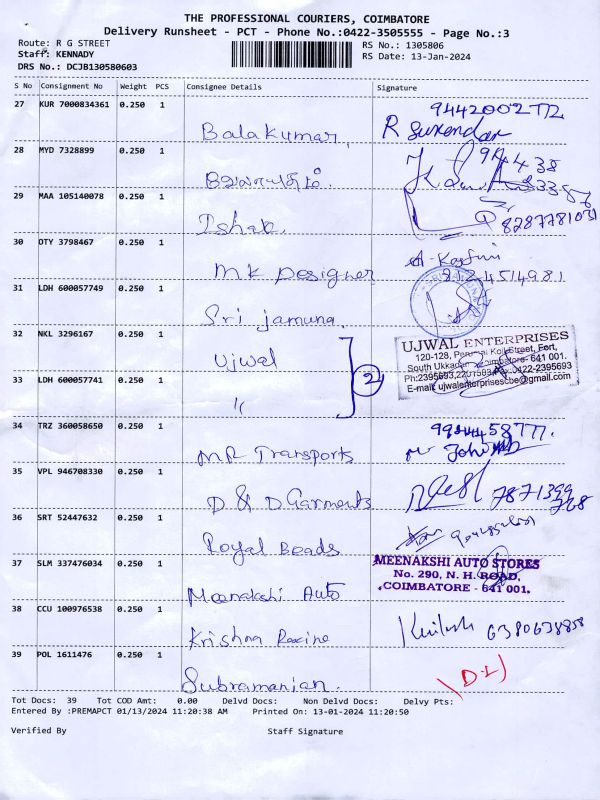 THE PROFESSIONAL COURIERS, COIMBATORE
Delivery Runsheet - PCT - Phone No.:0422-3505555 - Page No.:3
Route: R G STREET
RS No.: 1305806
Staff: KENNADY
RS Date: 13-Jan-2024
DRS No.: DCJB130580603
S No Consignment No Weight PCS Consignee Details Signature
27 KUR 7000834361 0.250 1
Balakumar R Surendar 9442002772
28 MYD 7328899 0.250 1
29 MAA 105140078 0.250 1
8287781031
Ishak.
30 OTY 3798467 0.250 1
MK Designer
31 LDH 600057749 0.250 1
Sri jamuna.
32 NKL 3296167 0.250 1
Ujwal
2
UJWAL ENTERPRISES
120-128, Perumal Koil Street, Fort,
South Ukkadam, Coimbatore- 641 001.
Ph:2395693, 0422-2395693
E-mail: ujwalenterprisescbe@gmail.com
33 LDH 600057741 0.250 1
"
34 TRZ 360058650 0.250 1
MR Transports
35 VPL 946708330 0.250 1
D & D Garments 7871399
768
36 SRT 52447632 0.250 1
Royal Beads
37 SLM 337476034 0.250 1
MEENAKSHI AUTO STORES
No. 290, N. H. ROAD,
COIMBATORE - 641 001.
Meenakshi Auto
38 CCU 100976538 0.250 1
Krishna Rexine 6380638858
39 POL 1611476 0.250 1
Subramanian.
(D-L)
Tot Docs: 39 Tot COD Amt: 0.00 Delvd Docs: Non Delvd Docs: Delvy Pts:
Entered By :PREMAPCT 01/13/2024 11:20:38 AM Printed On: 13-01-2024 11:20:50
Verified By Staff Signature